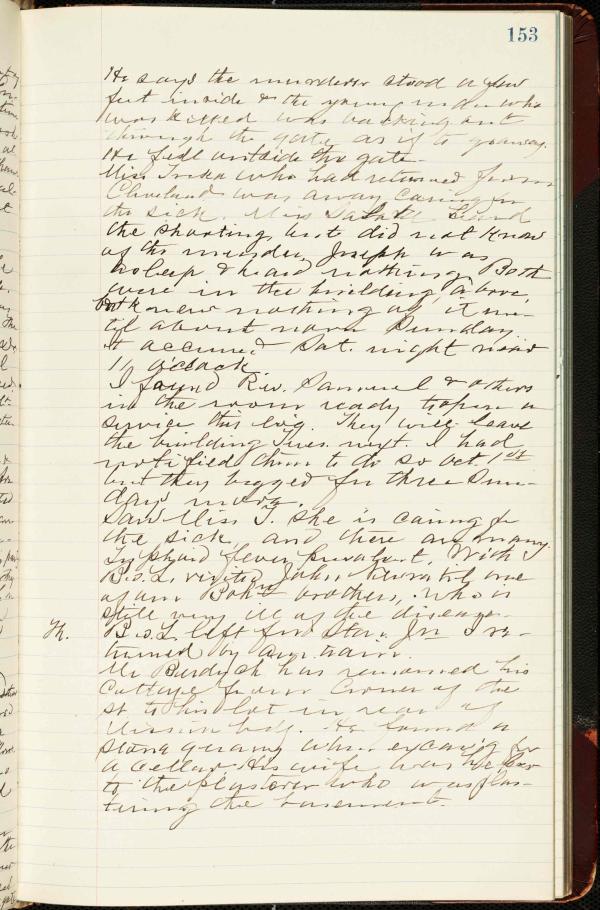 153
He says the murderer stood a few
feet inside & the young man who
was killed was backing out
through the gate, as if to go away.
He fell outside the gate.
Miss who had returned from
Cleveland was away caring for
the sick. Miss heard
the shooting but did not know
of the murder. Joseph was
asleep & heard nothing. Both
were in the building, above,
but knew nothing of it un-
til about noon Sunday.
It accured Sat. night near
11 o'clock.
I found Rev. Samuel & others
in the room ready to open a
service this evg. They will leave
the building Tues. next. I had
notified them to do so Oct. 1st
but they begged for three Sun-
days more.
Saw Miss T. She is caring for
the sick, and there are many
Typhoid fever prevalent. With
B.o.L. visited John one
of our Boh brothers, who is
still very ill of the disease.
Th. B.o.L. left for Sta. Jn I re-
turned by a.m. train.
Mr Burdych has removed his
Cottage from Corner of the
st. to his lot in rear of
Mission bdg. He found a
stone quarry when excavg for
a cellar. His wife was helper
to the plasterer who was plas-
tering the basement.